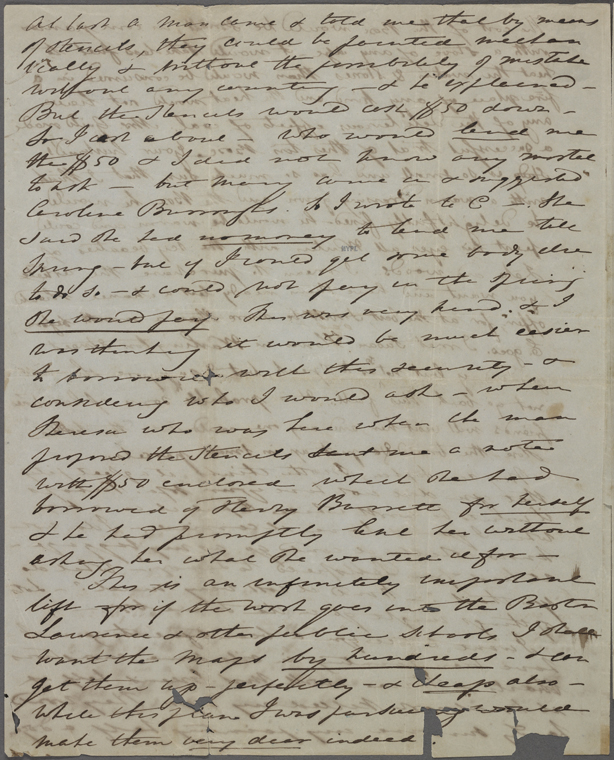 At last a man came & told me that by means
of stencils they could be painted mechan
ically & without the possibility of mistake
without any counting – & he explained –
But the Stencils would cost $50 down –
So I cast about who would lend me
the $50 & I did not know any mortal
to ask – but Mary came in & suggested
Caroline Burroughs. So I wrote to C— She
said she had no money to lend me till
Spring – but if I could get some body else
to do so – & could not pay in the Spring
She would pay. This was very kind, & I
was thinking it would be much easier
to borrow with this security – &
considering who I would ask – when
who was here when the man
proposed the Stencils sent me a note
with $50 enclosed which she had
borrowed of Barrett for herself
& he had promptly lent her without
asking her what she wanted it for –
This is an infinitely important
lift – for if the work goes into the Boston
Lawrence & other public Schools I shall
want the Maps by hundreds – & can
get them up perfectly – & cheap also –
while the plan I was pursuing would
make them very dear indeed.